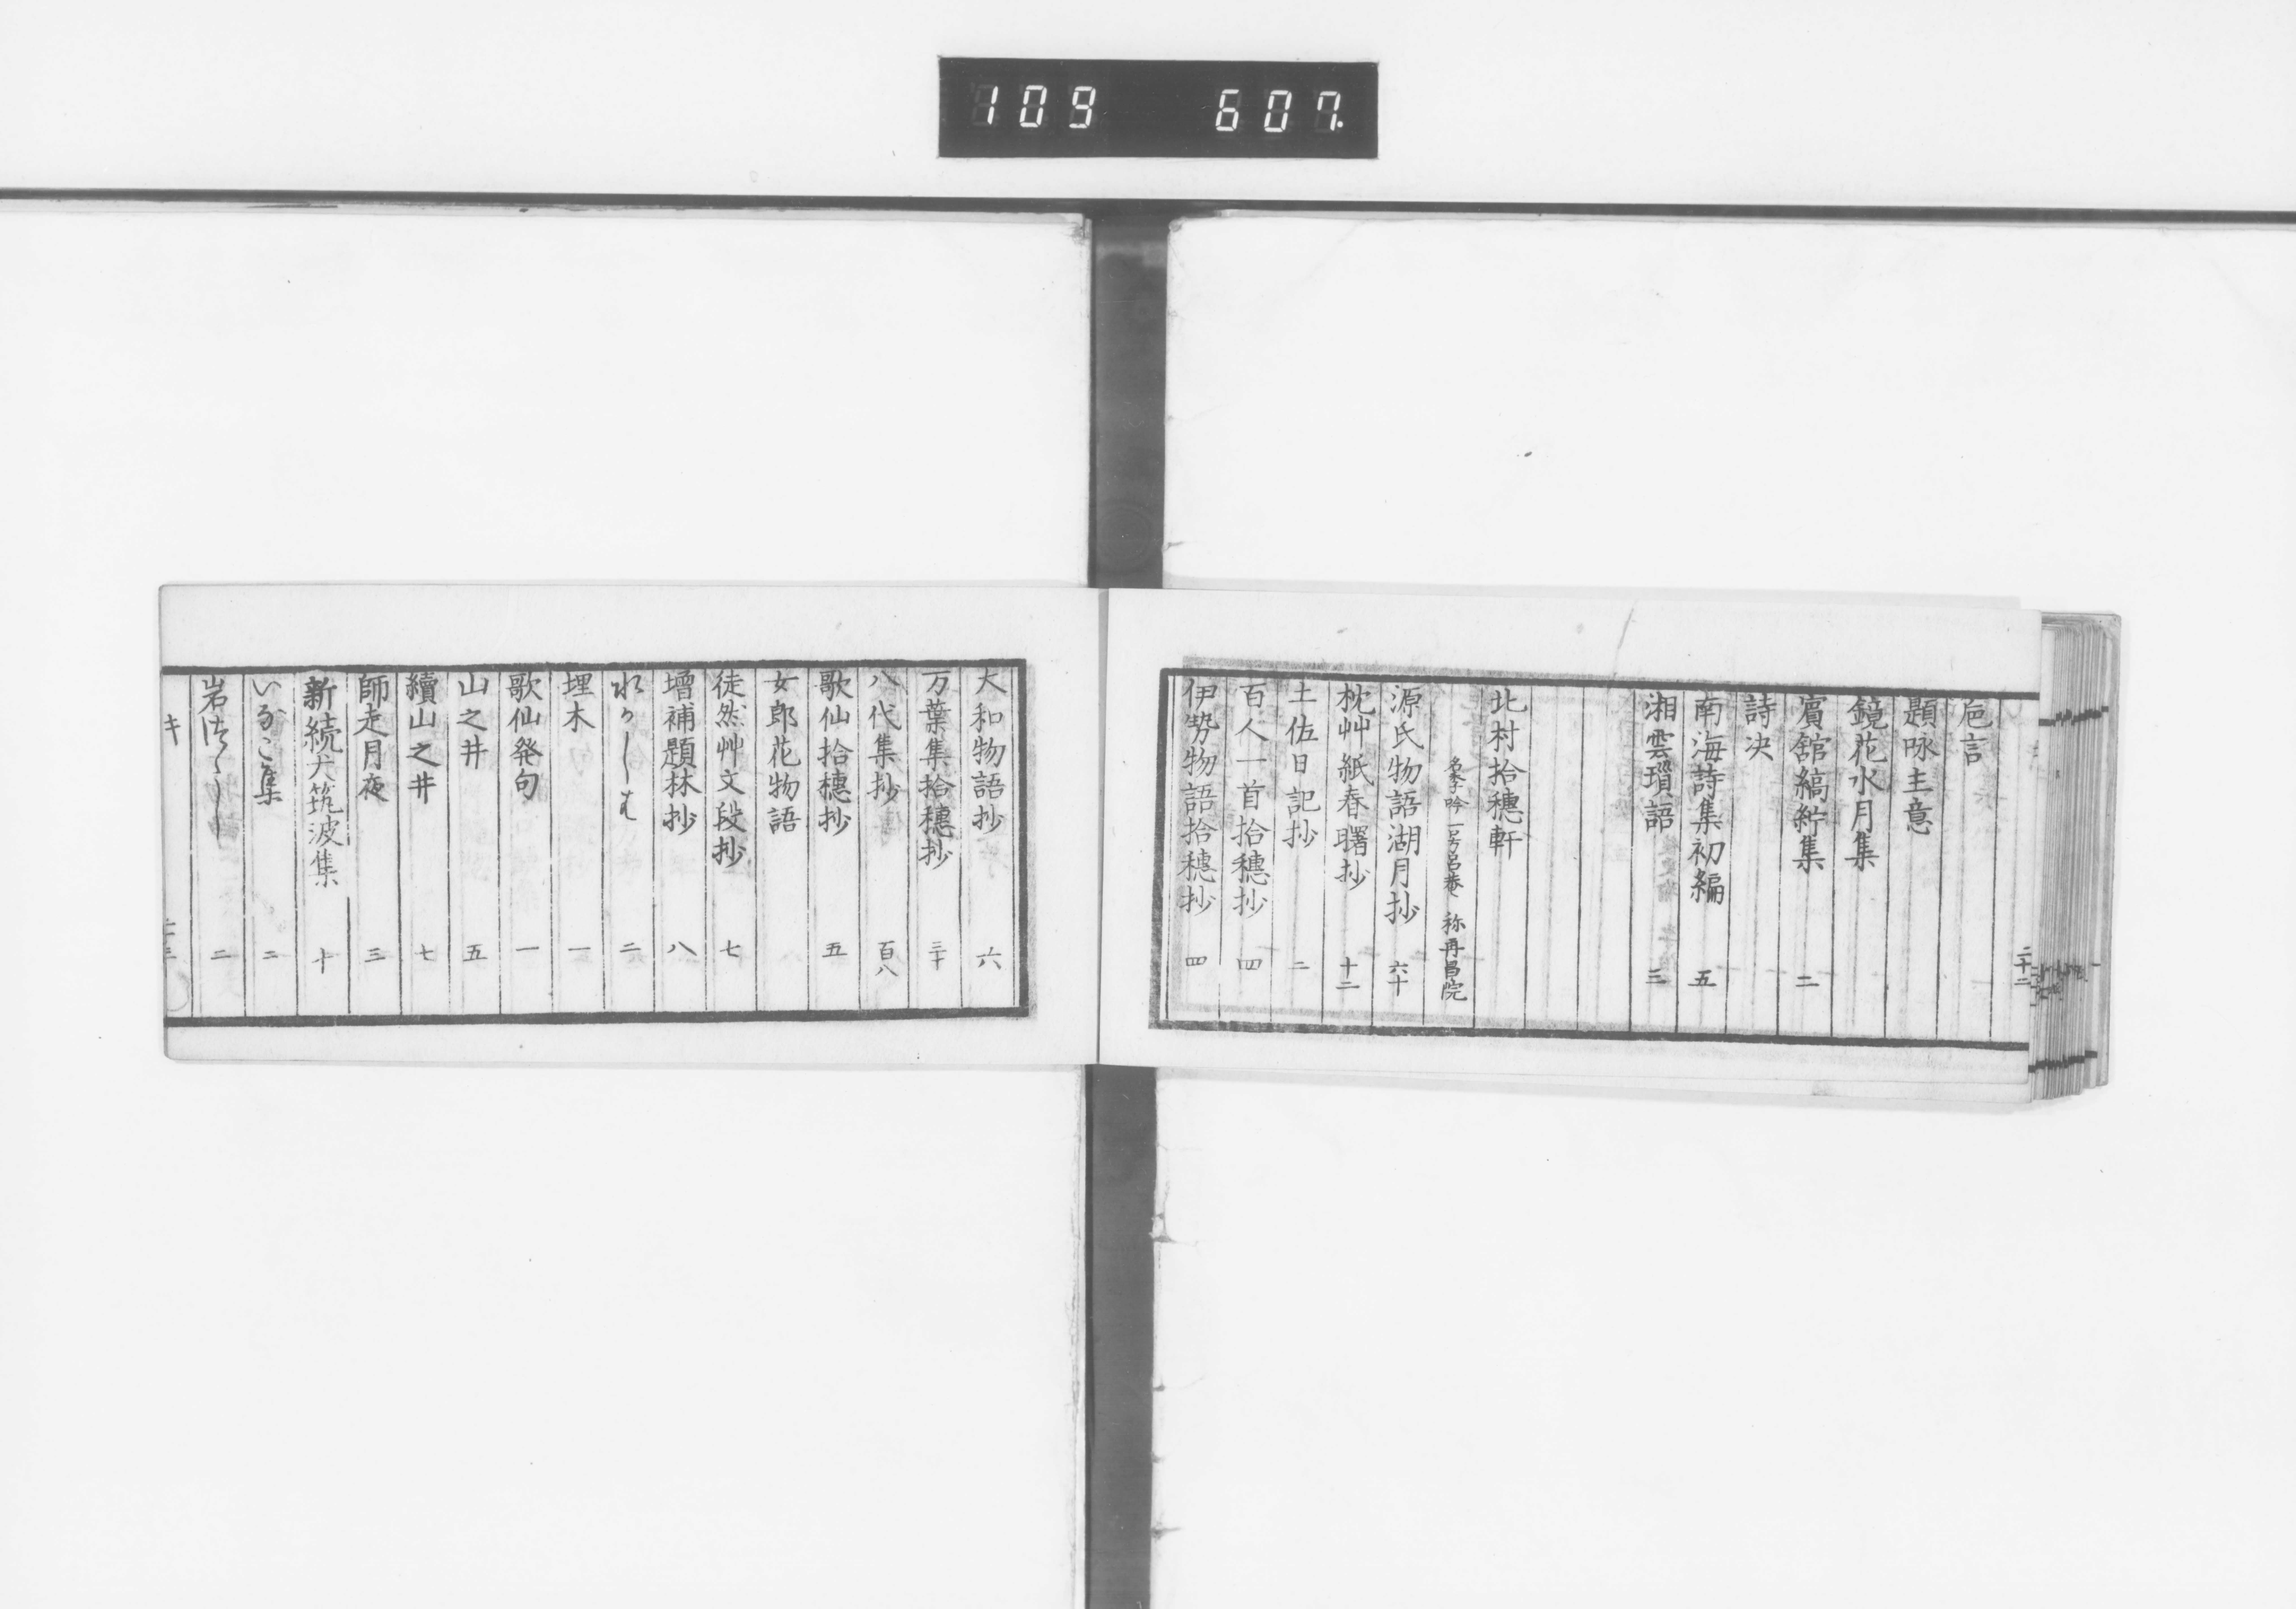 109 607
二十二
巵言
題咏主意
鏡花水月集
賓舘縞紵集 二
詩決
南海詩集初編 五
湘雲瓚語 三
北村拾穗軒
名季吟 一号呂菴 称再昌院
源氏物語湖月抄 六十
枕艸紙春曙抄 十二
土佐日記抄 二
百人一首拾穗抄 四
伊勢物語拾穗抄 四
大和物語抄 六
万葉集拾穗抄 三十
八代集抄 百八
歌仙拾穗抄 五
女郎花物語
徒然艸文段抄 七
増補題林抄 八
水かゝみ 二
埋木 一
歌仙発句 一
山之井 五
續山之井 七
師走月夜 三
新続犬筑波集 十
いなこ集 二
岩つゝし 二
キ